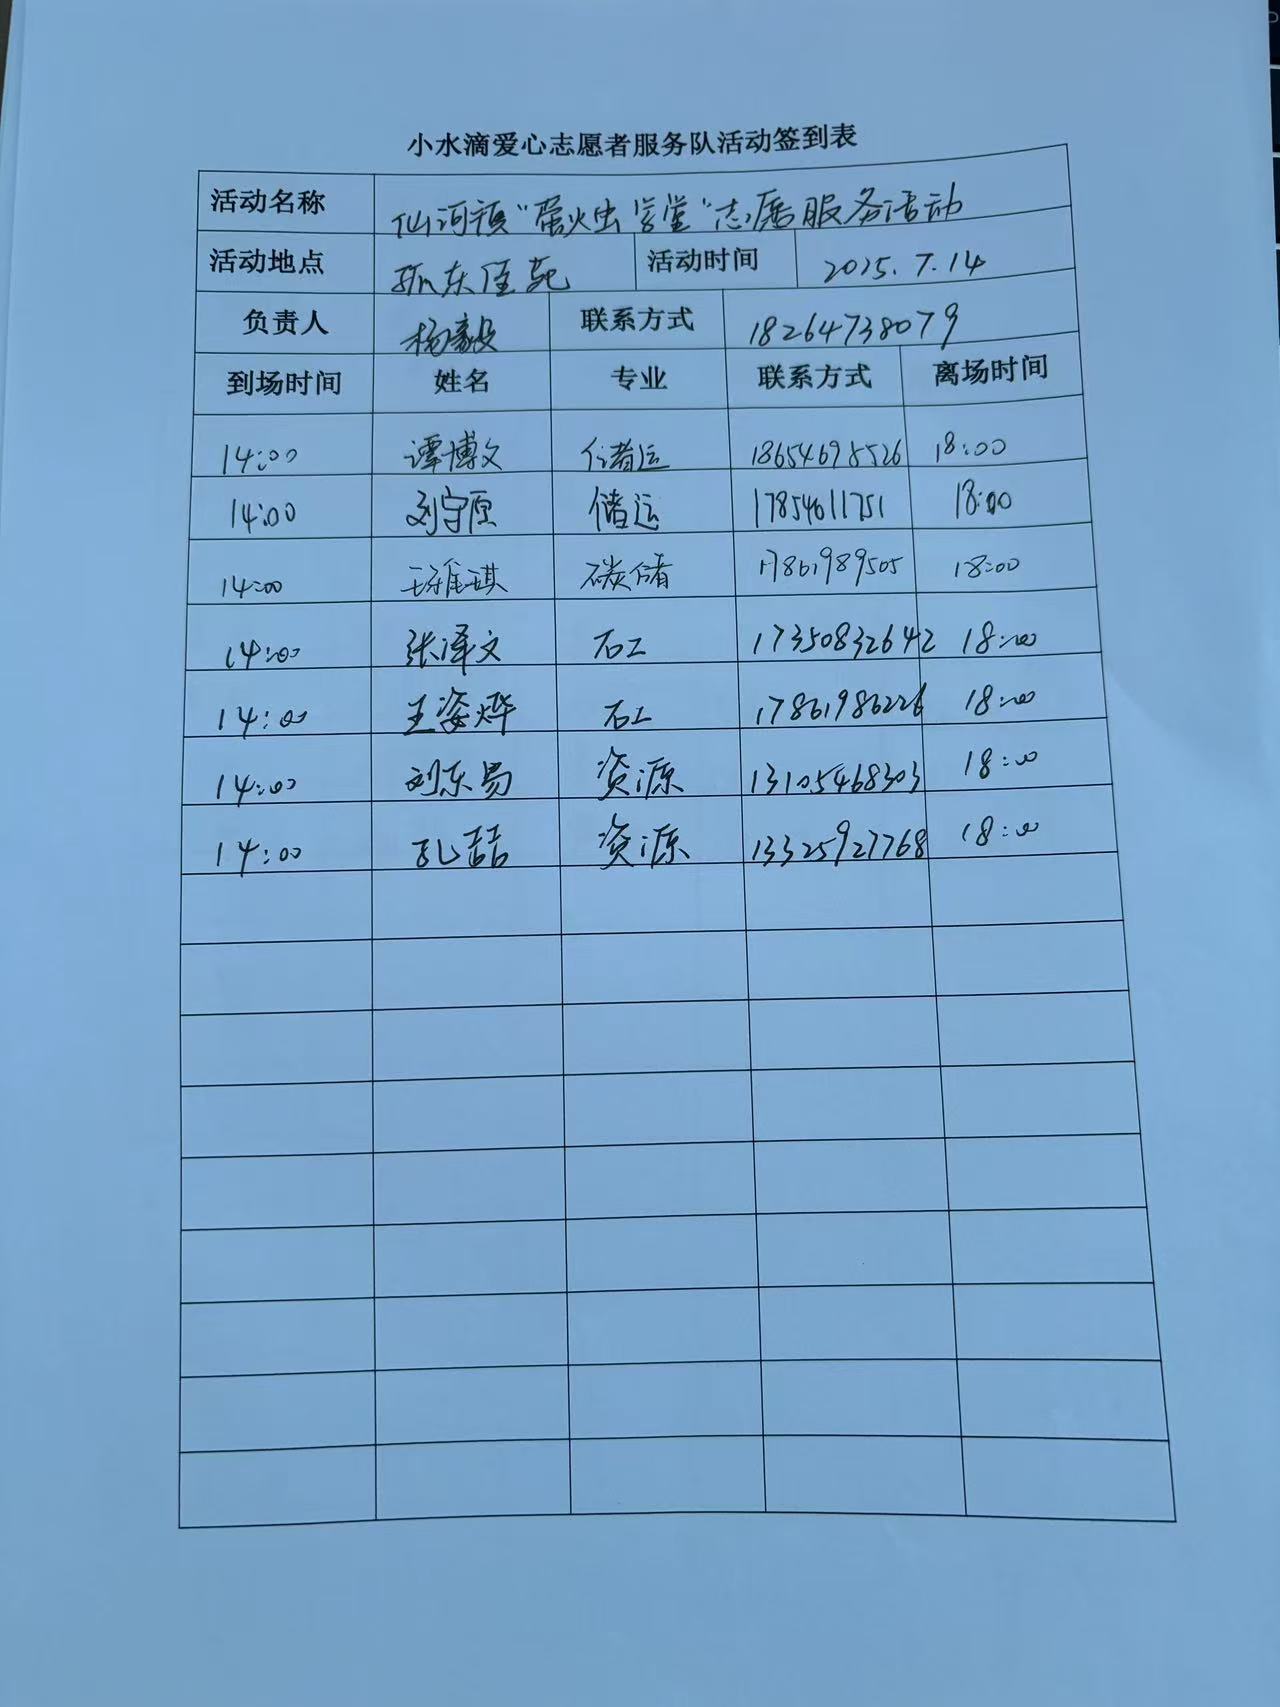 小水滴爱心志愿者服务队活动签到表
活动名称 仙河镇“萤火虫学堂”志愿服务活动
活动地点 孤东佳苑 活动时间 2025.7.14
负责人 杨毅 联系方式 18264738079
到场时间 姓名 专业 联系方式 离场时间
14:00 谭博文 储运 18654698526 18:00
14:00 刘宇原 储运 17854611751 18:00
14:00 碳储 17861989505 18:00
14:00 张泽文 石工 17350832642 18:00
14:00 王姿烨 石工 17861986226 18:00
14:00 刘东易 资源 13105468303 18:00
14:00 孔喆 资源 13325927768 18:00